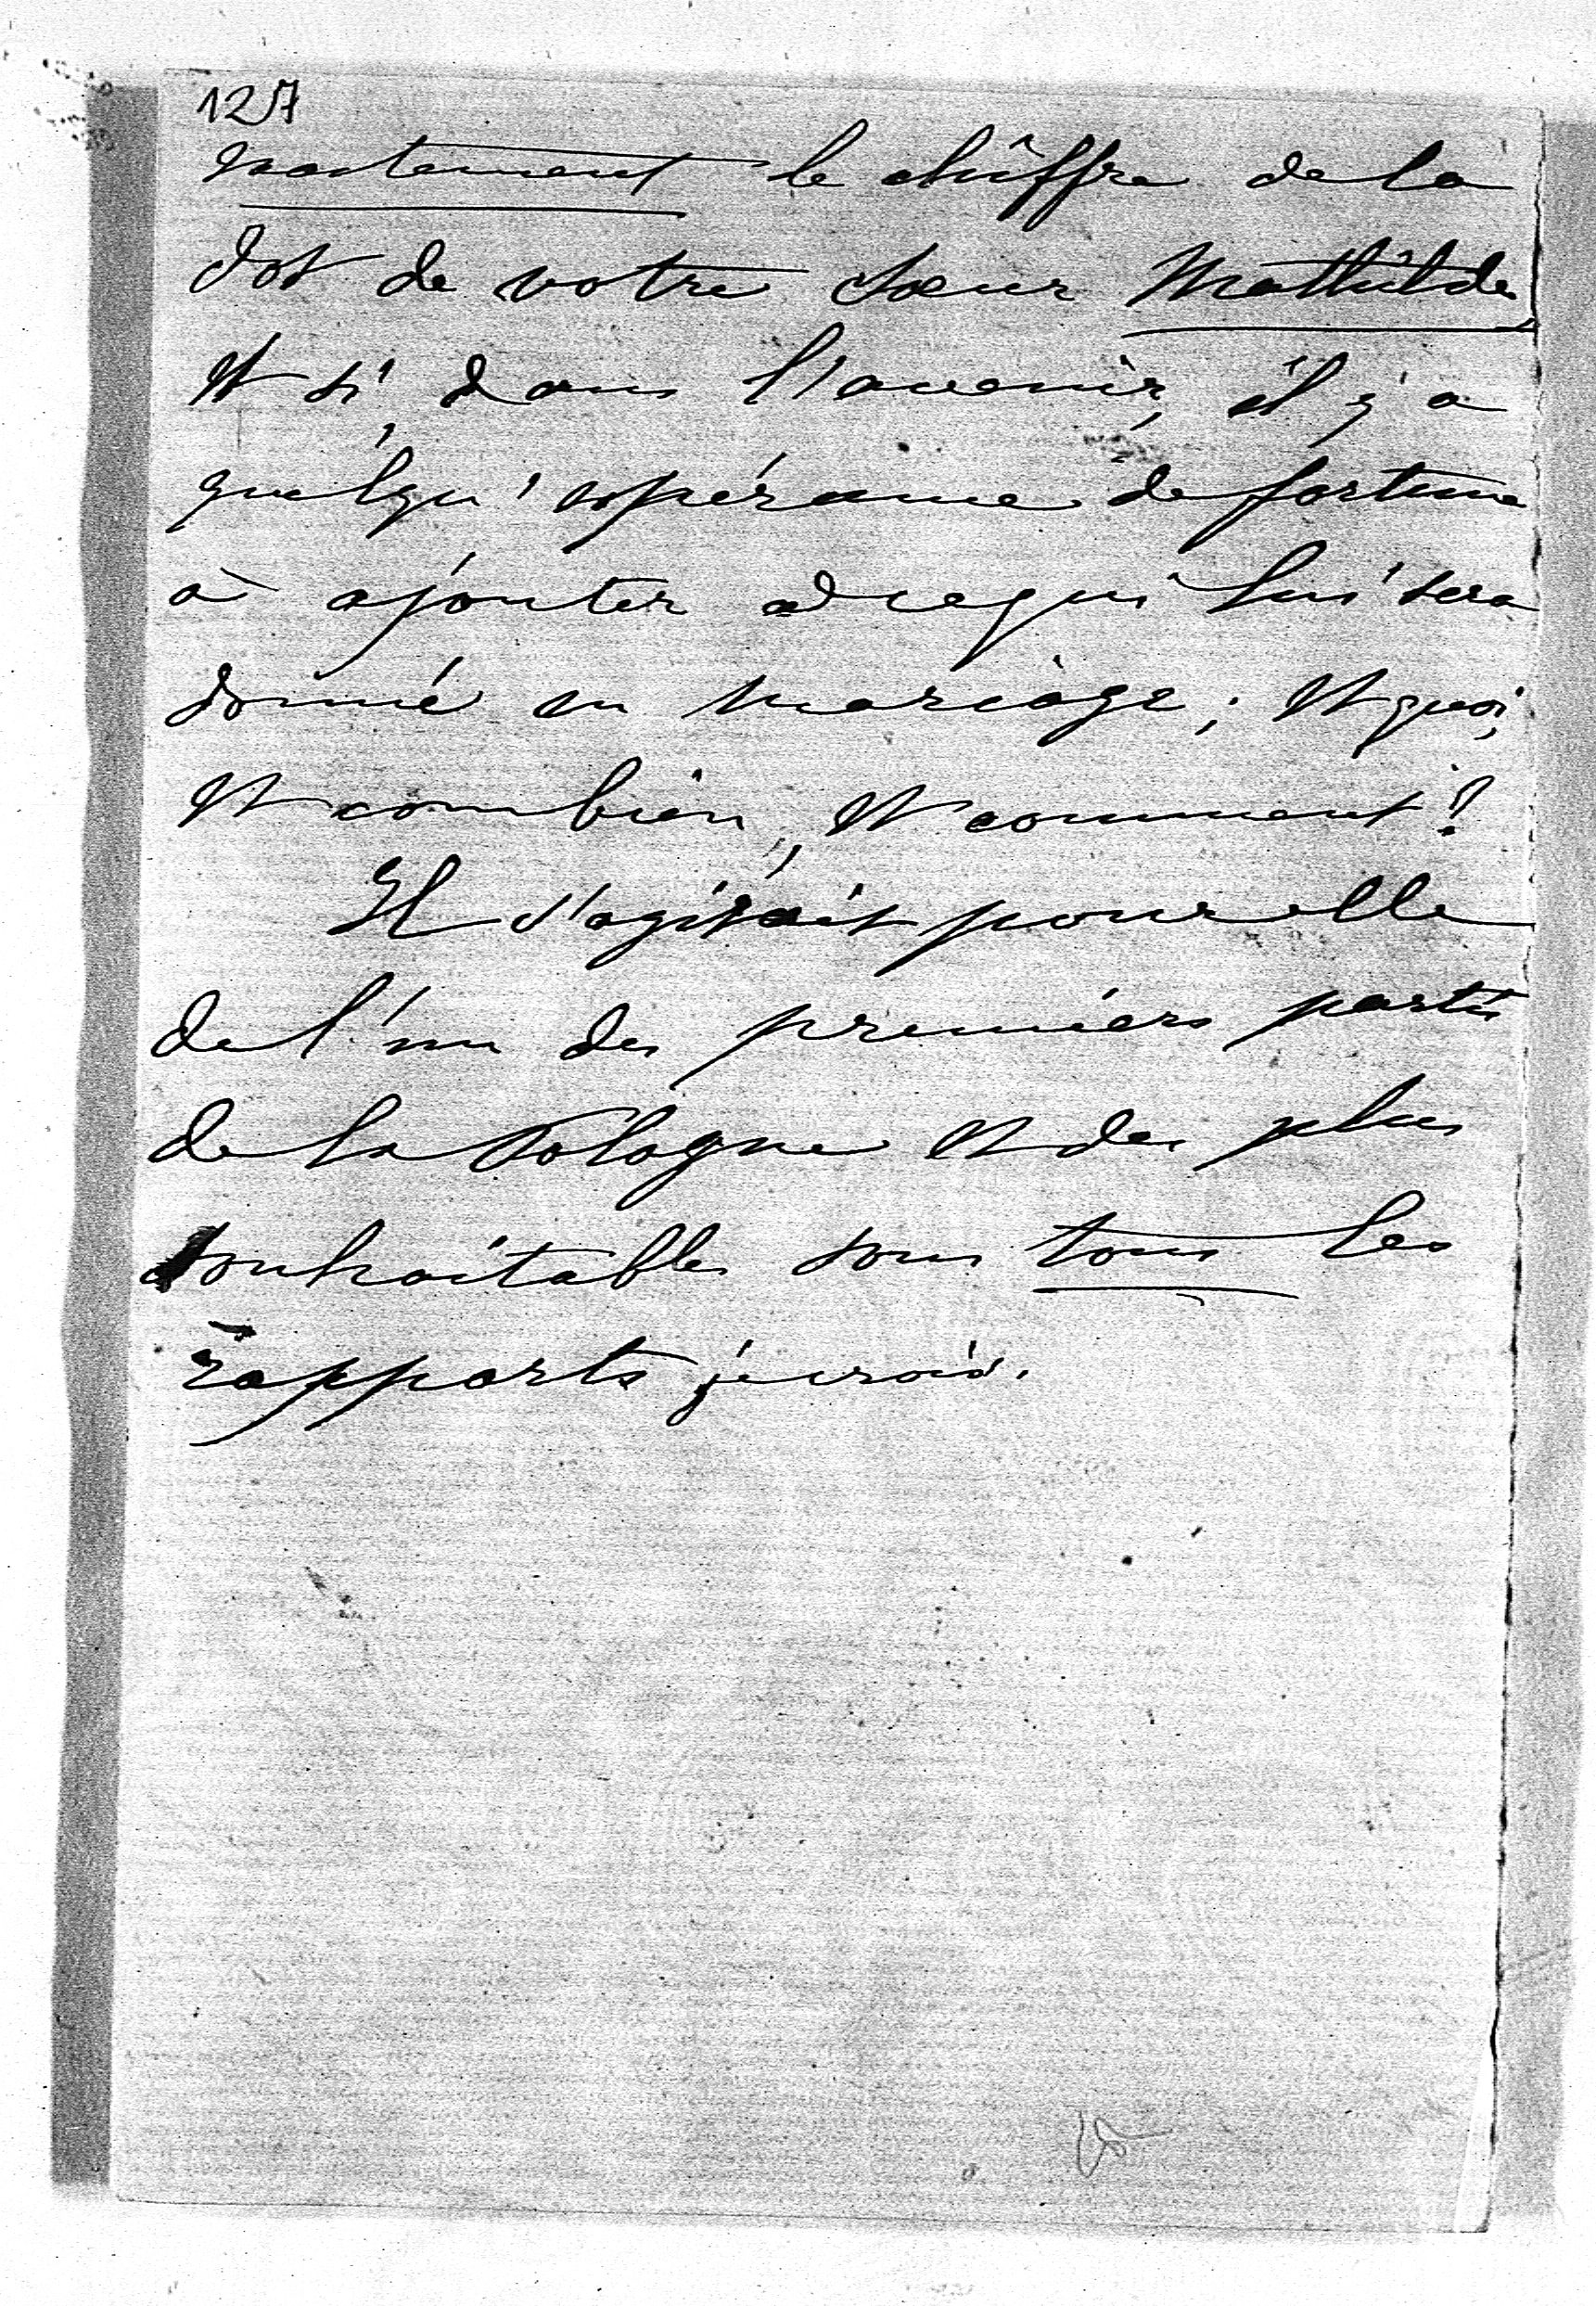 127
exactement le chiffre de la
dot de votre sœur Mathilde
et si dans l'avenir, il y a
quelqu'espérance de fortune
à ajouter à ce qui lui sera
donné en mariage ; et quoi,
et combien, et comment ?
Il s'agirait pour elle
de l'un des premiers partis
de la Pologne et des plus
souhaitables sous tous les
rapports je crois.